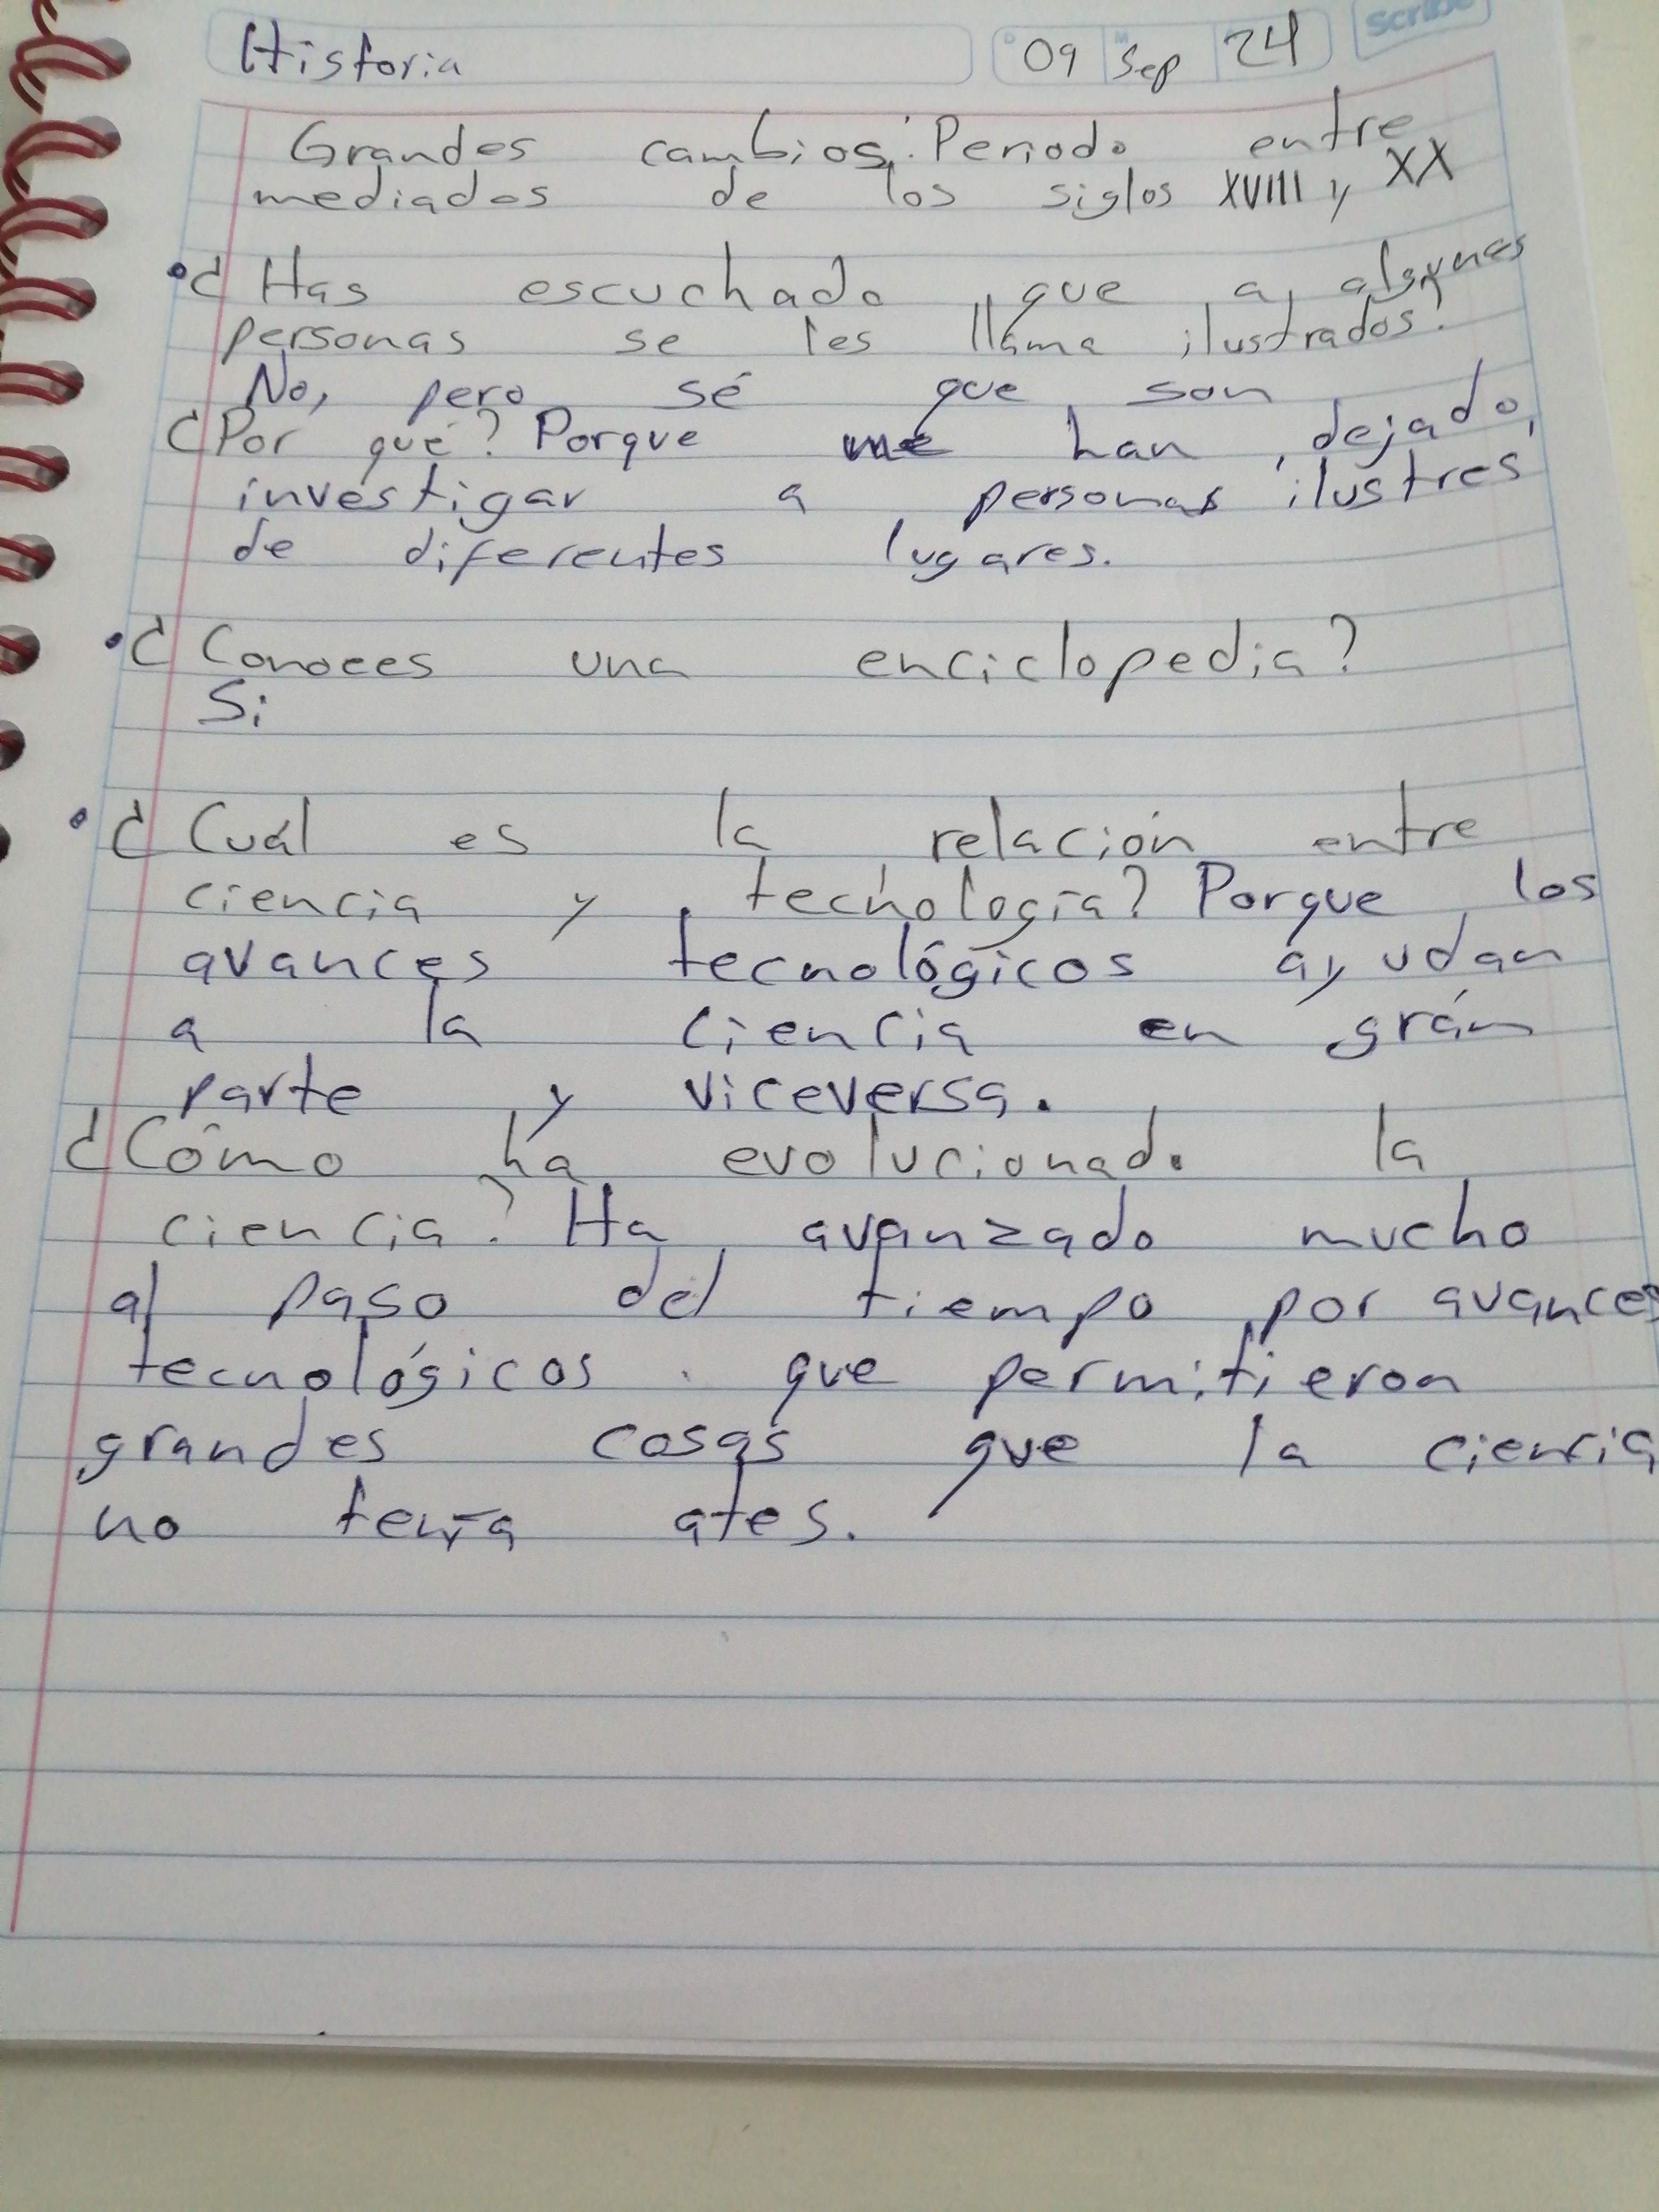 Historia 09 Sep 24 Scribe
Grandes cambios: Periodo entre
mediados de los siglos XVIII y XX
• ¿Has escuchado que a algunas
personas se les llama ilustrados?
No, pero sé que son
¿Por qué? Porque me han dejado
investigar a personas ilustres
de diferentes lugares.
• ¿Conoces una enciclopedia?
Si
• ¿Cuál es la relación entre
ciencia y tecnología? Porque los
avances tecnológicos ayudan
a la ciencia en grán
parte y viceversa.
¿Cómo ha evolucionado la
ciencia? Ha avanzado mucho
al paso del tiempo por avances
tecnológicos que permitieron
grandes cosas que la ciencia
no tenía ates.